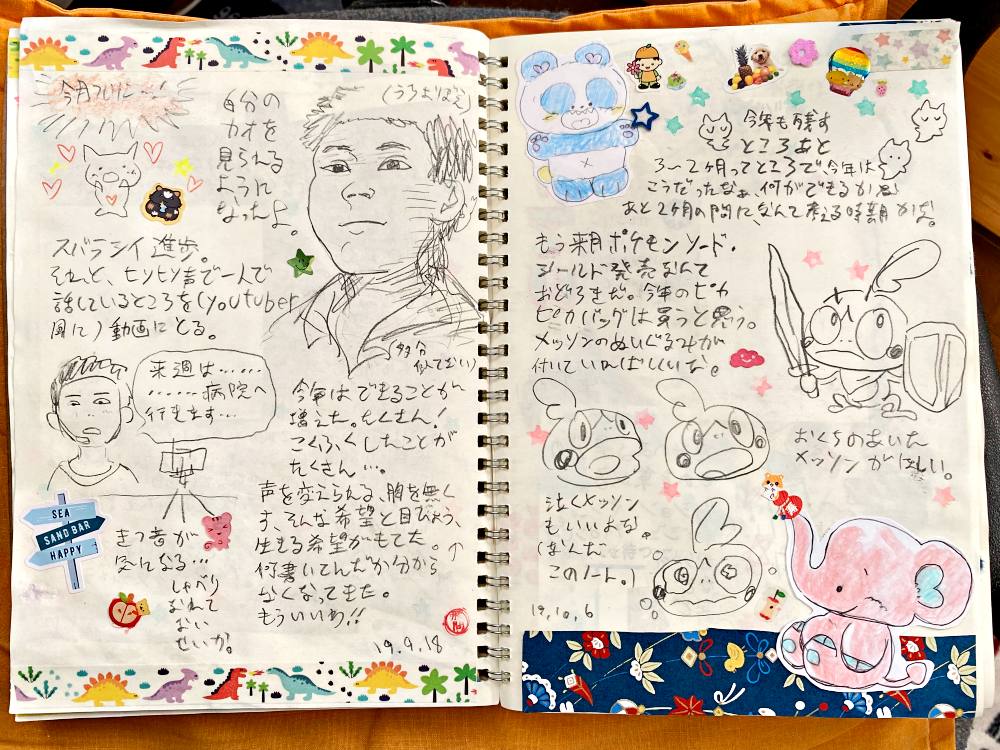 今月ついに…!
自分の
カオを
見られる
ように
なったよ。
(うろおぼえ)
スバラシイ進歩。
それと、ヒソヒソ声で一人で
話しているところを(youtuber
風に)動画にとる。
(多分
似てない)
来週は……
……病院へ
行きます…
今年はできることが
増えた。たくさん!
こくふくしたことが
たくさん…。
声を変えられる、胸を無く
す、そんな希望と目びょう、
生きる希望がもてた。↑
何書いてんだか分から
なくなってきた。
もういいわ!!
19.9.18
SEA
SAND BAR
HAPPY
きつ音が
気になる…
しゃべり
なれて
ない
せいか。
今年も残す
ところあと
3〜2ヶ月ってところで、今年は
こうだったなぁ、何ができるかな
あと2ヶ月の間に、なんて考える時期かぁ。
もう来月ポケモンソード・
シールド発売なんて
おどろきだ。今年のピカ
ピカバッグは買うと思う。
メッソンのぬいぐるみが
付いていればいいな。
おくちのあいた
メッソンがほしい。
泣くメッソン
もいいよな。
(なんだ
このノート。)
19.10.6